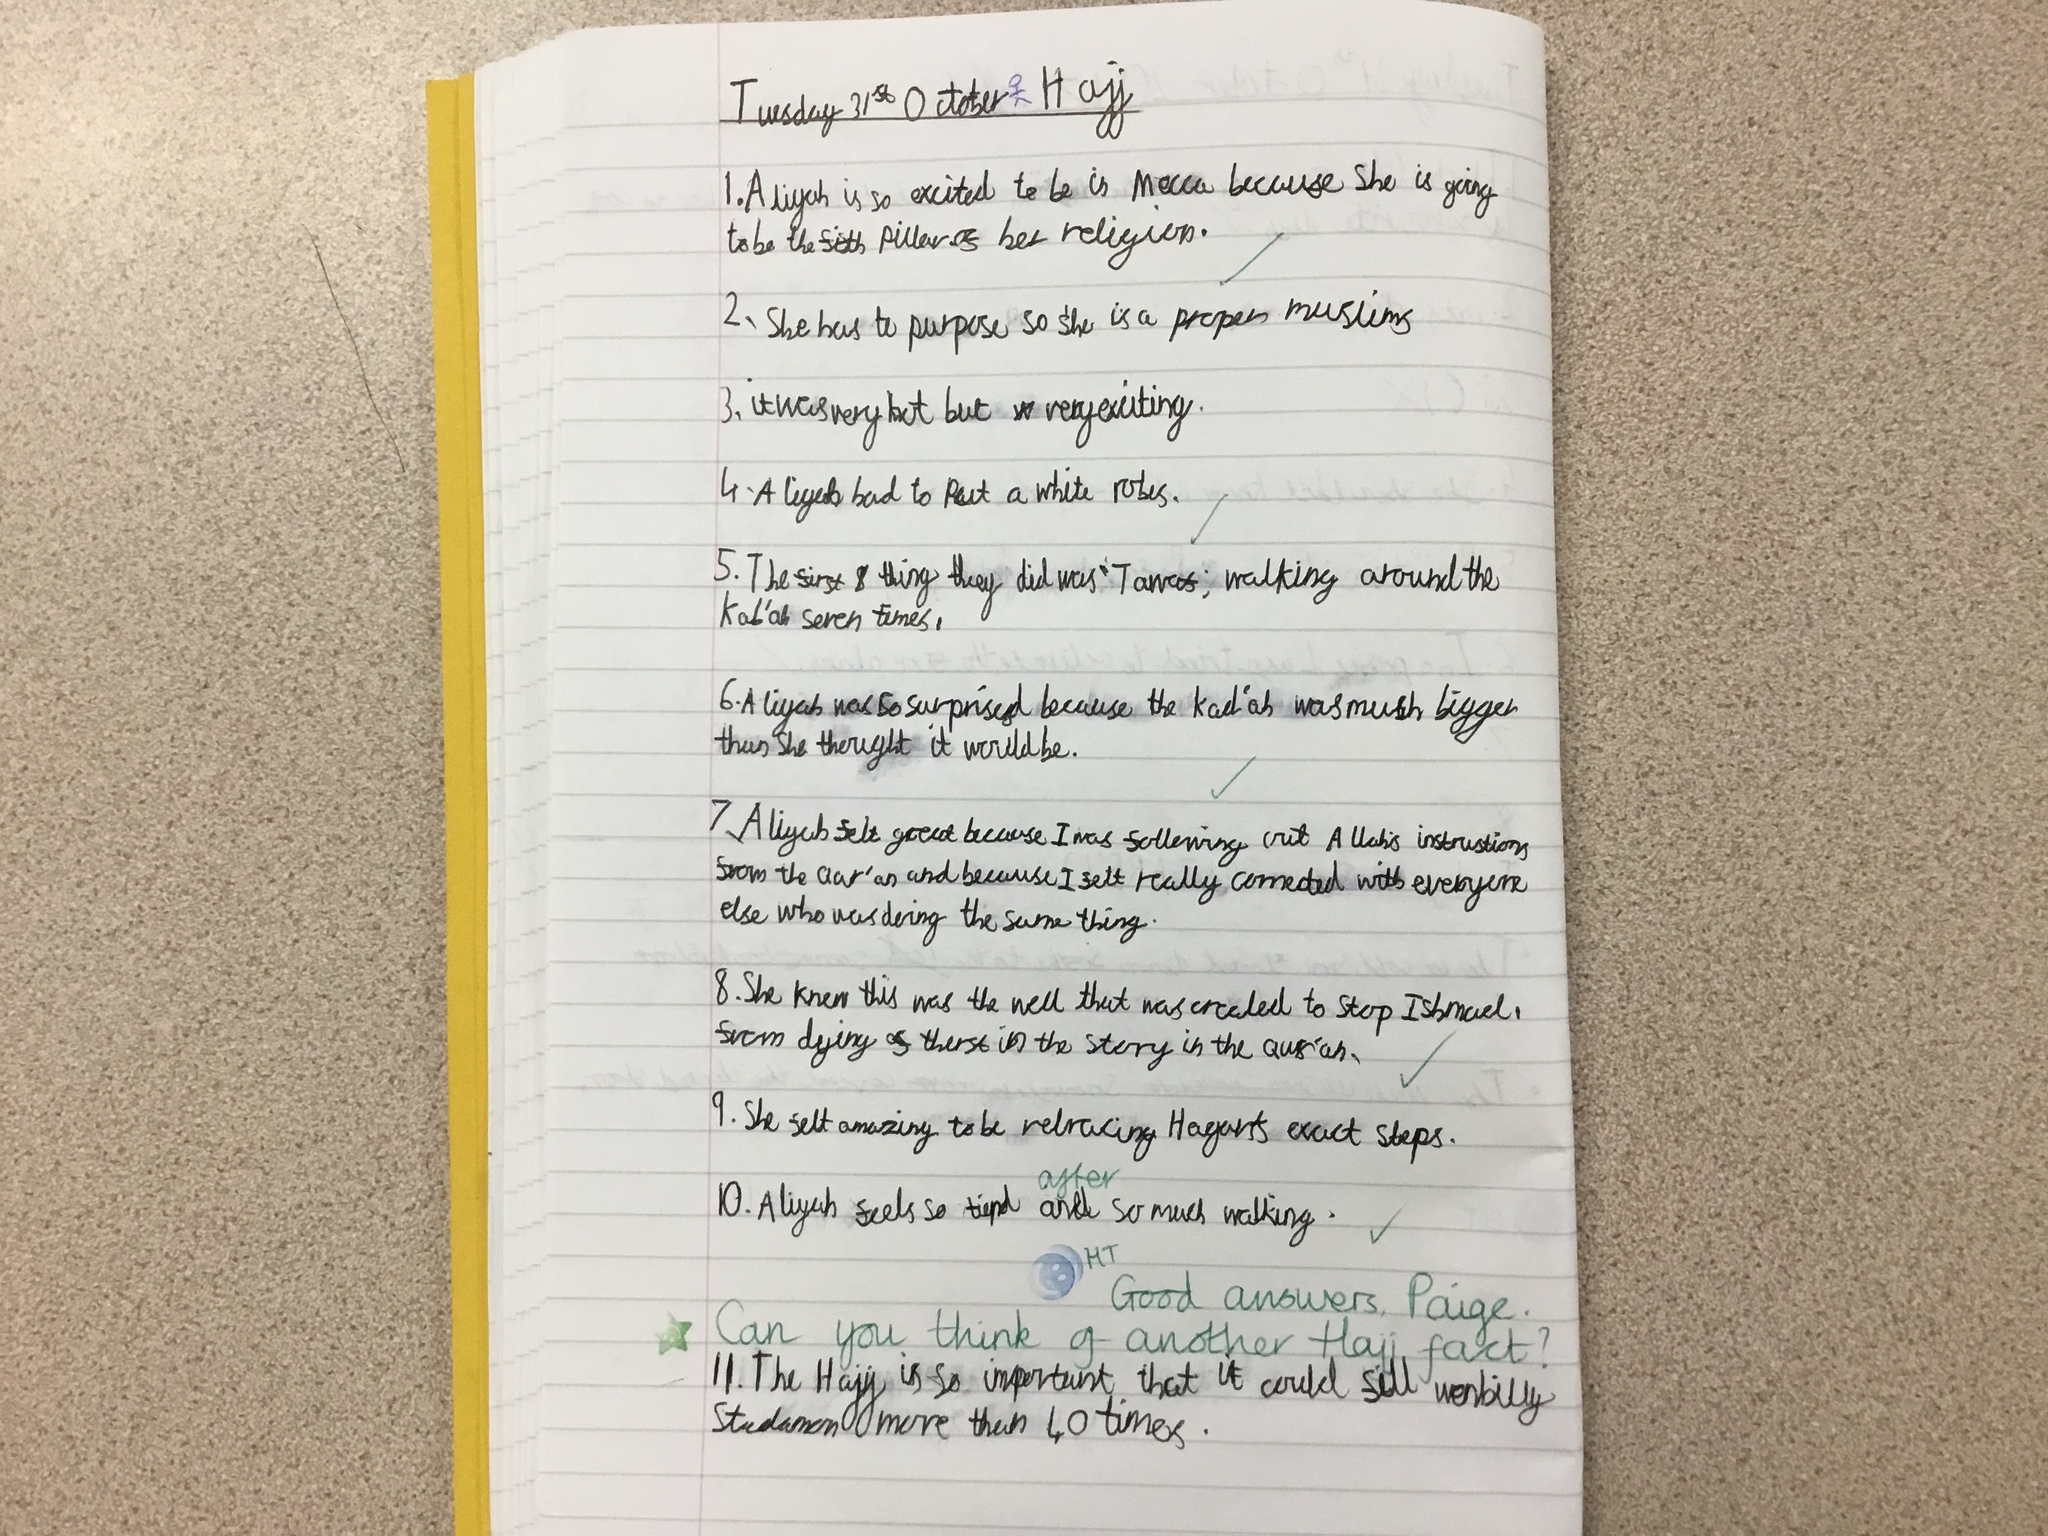 Tuesday 31st October Hajj
1. Aliyah is so excited to be in Mecca because she is going
to be the fifth pillar of her religion.
2. She has to purpose so she is a proper muslims
3. it was very hot but very exciting.
4. Aliyah had to Put a white robes.
5. The first thing they did was 'Tawaf', walking around the
Kab'ah seven times.
6. Aliyah was so surprised because the Kad'ah was mush bigger
than she thought it would be.
7. Aliyah felt great because I was following out Allah's instrustions
from the Qur'an and because I felt really connected with everyone
else who was doing the same thing.
8. She knew this was the well that was created to stop Ishmael.
from dying of therst in the story in the Qur'an.
9. She felt amazing to be retracing Hagar's exact steps.
after
10. Aliyah feels so tierd so much walking.
MT
Good answers, Paige.
Can you think of another Hajj fact?
11. The Hajj is so important that it could fill wenbilly
Stadamon more than 40 times.